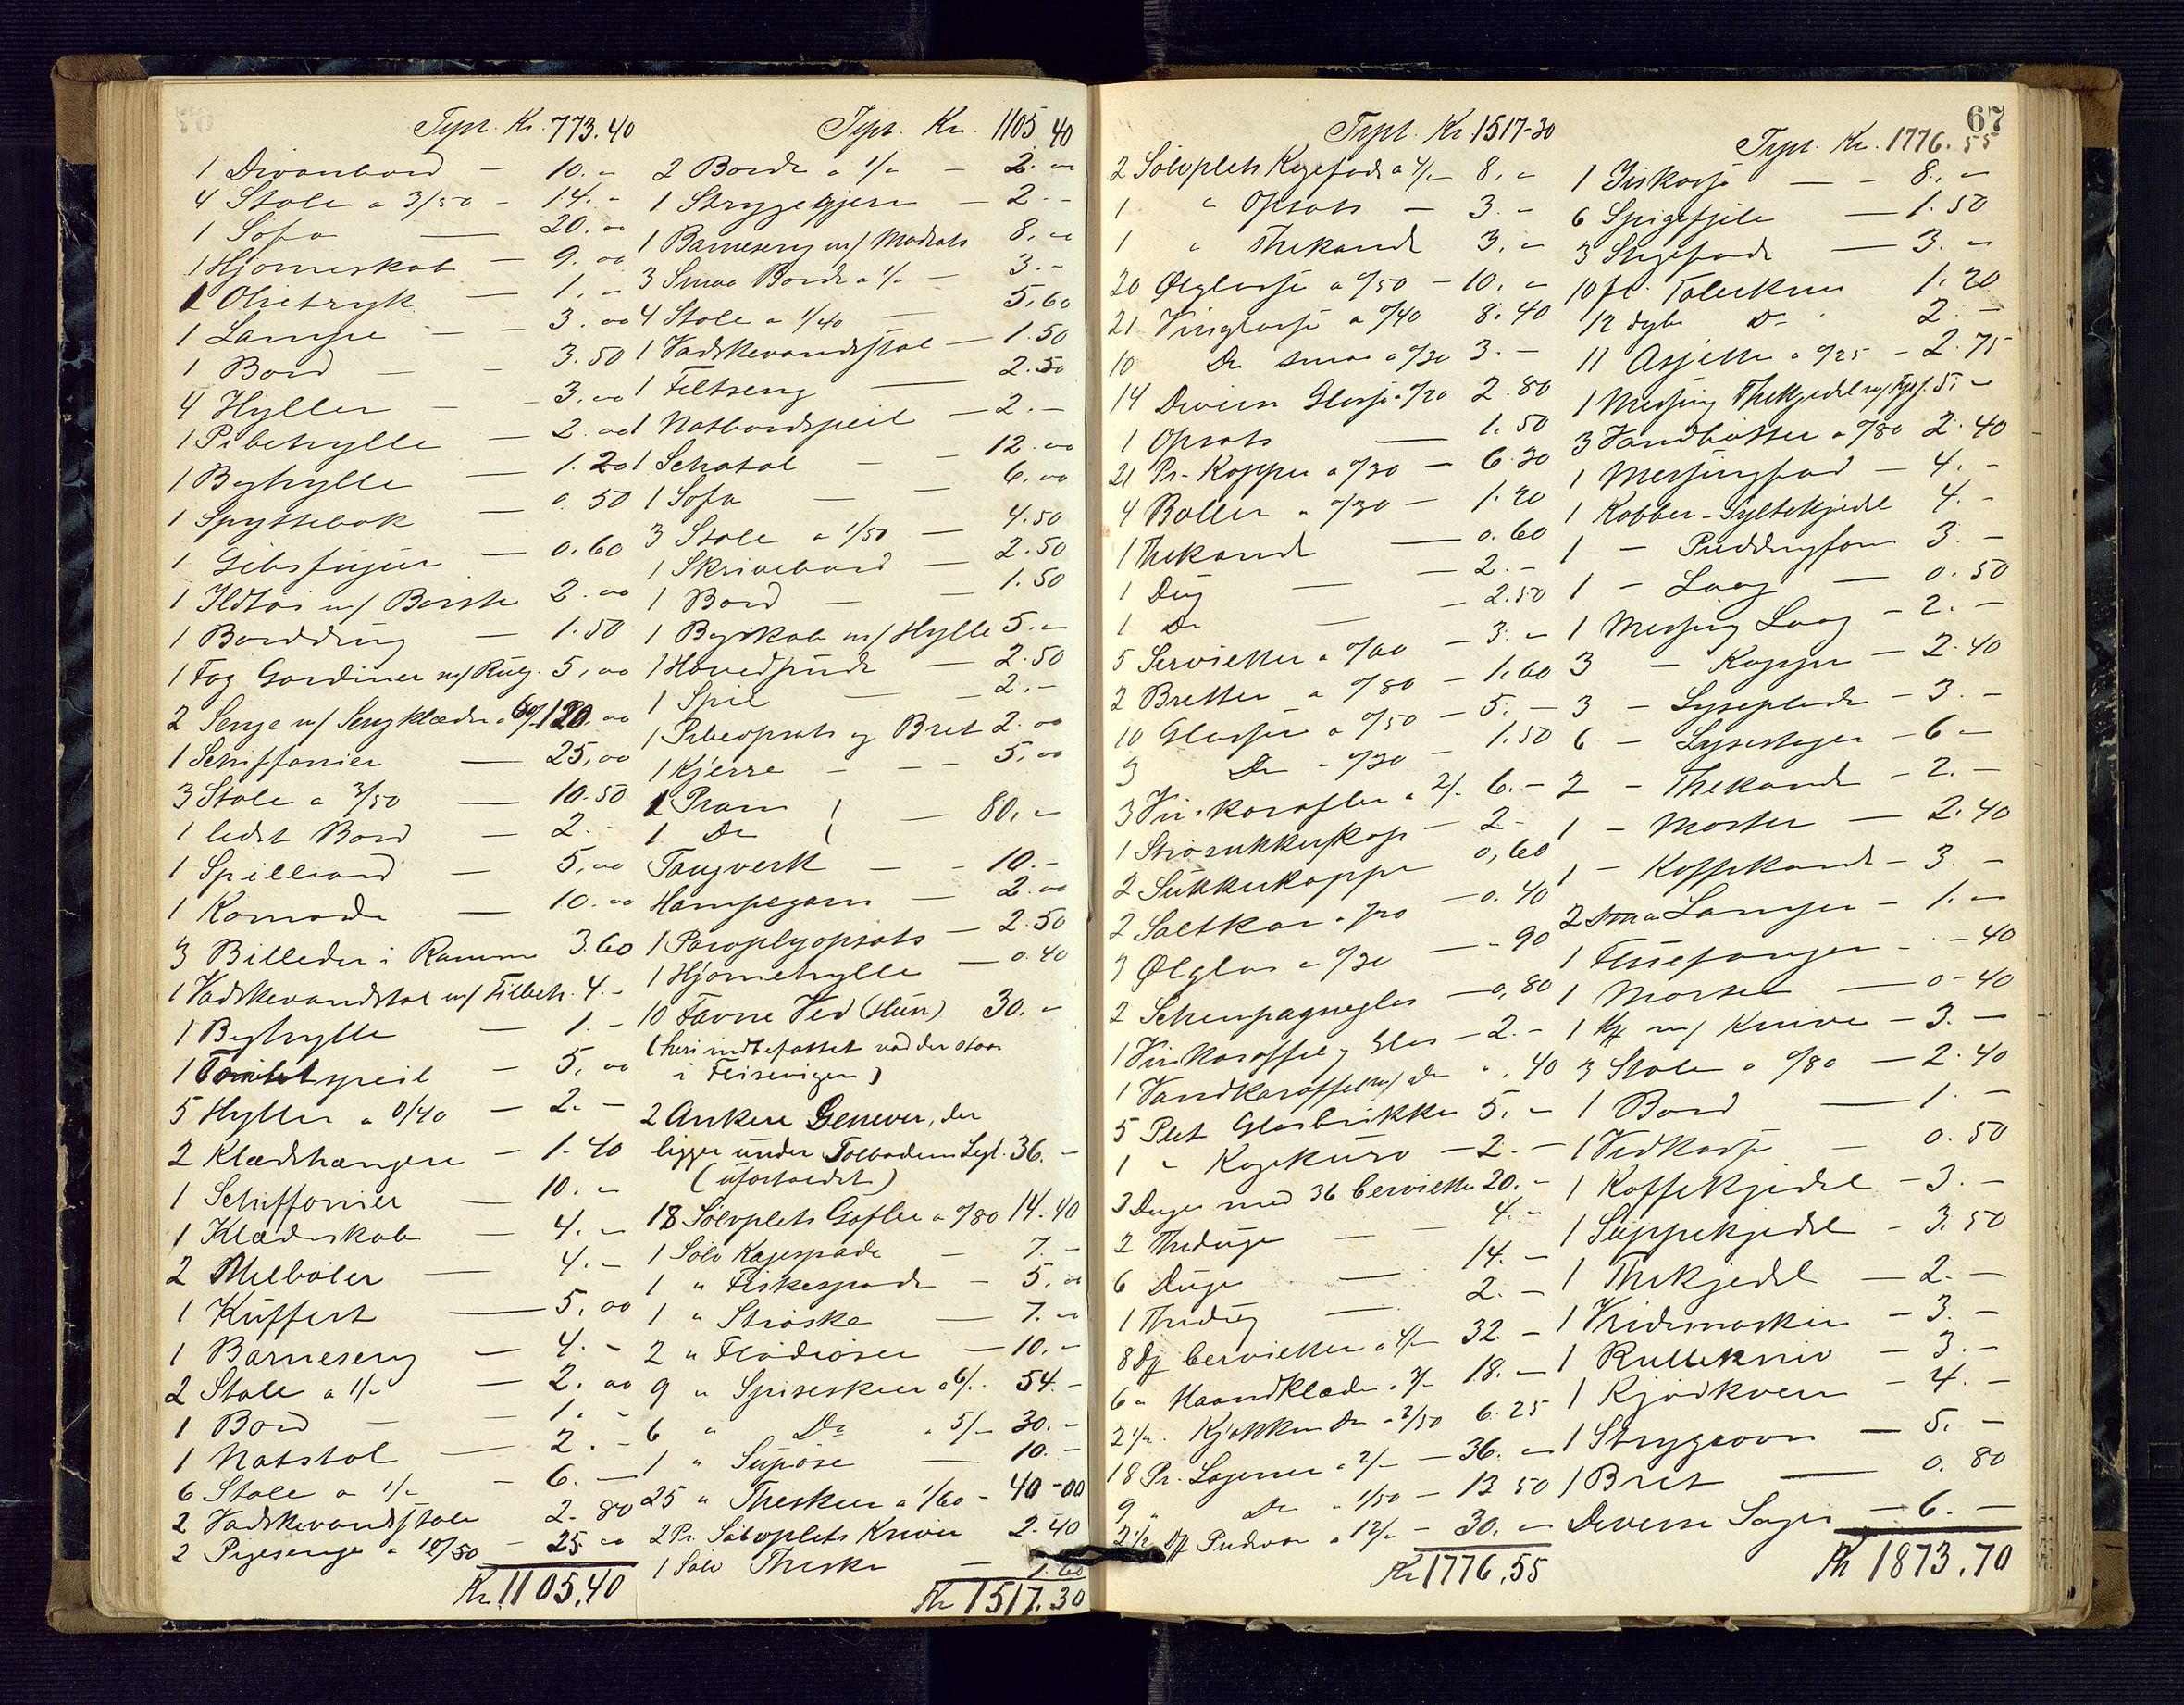 Trpt. Kr. 773.40
1 Divanbord — 10. "
4 Stole a 3/50 - 14. "
1 Sofa — 20. oo
1 Hjørneskab — 9. oo
1 Olietryk — 1. "
1 Lampe — 3. oo
1 Bord — 3.50
4 Hyller — 3. oo
1 Pibehylle — 2. oo
1 Boghylle — 1.20
1 Spyttebak — 0.50
1 Gibsfigur — 0.60
1 Ildtøi m/ Børste 2. oo
1 Borddug — 1.50
1 Fag Gardiner m/ Rulg. 5, oo
2 Senge m/ Sengklæder a 60/- 120. oo
1 Schiffonier — 25, oo
3 Stole a 3/50 — 10.50
1 ledet Bord — 2. -
1 Spillbord — 5, oo
1 Komode — 10. oo
3 Billeder i Ramme 3.60
1 Vadskevandstol m/ Tilbeh. 4. -
1 Boghylle — 1. -
1 Toiletspeil — 5, oo
5 Hyller a 0/40 — 2. -
2 Klædshængere — 1.40
1 Schiffonier — 10. "
1 Klædeskab — 4. "
2 Melbøler — 4. "
1 Kuffert — 5, oo
1 Barneseng — 4. -
2 Stole a 1/- — 2. oo
1 Bord — 1. -
1 Natstol — 2. -
6 Stole a 1/- — 6. -
2 Vadskevandsstole 2. 80
2 Pigesenge a 12/50 - 25 oo
Kr. 1105.40
Trpt. Kr. 1105 40
2 Borde a 1/- — 2. oo
1 Strygegjern — 2. -
1 Barneseng m/ Madrats 8, "
3 Smaa Borde a 1/- — 3. -
4 Stole a 1/40 — 5,60
1 Vadskevandsstol — 1.50
1 Feltseng — 2.50
1 Natbordspeil — 2. -
1 Schatol — 12. oo
1 Sofa — 6, oo
3 Stole a 1/50 — 4.50
1 Skrivebord — 2.50
1 Bord — 1.50
1 Bogskab m/ Hylle 5. "
1 Hovedpude — 2.50
1 Spil — 2. -
1 Pibeopsats og Bret 2. oo
1 Kjerre — 5, oo
1 Pram
1 Do — 80, "
Taugverk — 10. -
Hampegarn — 2. oo
1 Paraplyopsats — 2.50
1 Hjørnehylle — 0.40
10 Favne Ved (Hun) 30. "
(heri indbefattet ved der staar
i Feisevigen)
2 Ankere Genever, der
ligger under Toldbodens Lgl. 36. -
(ufortoldet)
18 Sølvplets Gafler a 0/80 14.40
1 Sølv Kagespade — 7. -
1 " Fiskespade — 5. oo
1 " Strøske — 7. "
2 " Flødeøser — 10. -
9 " Spiseskeer a 6/- 54. -
6 " Do a 5/- 30. -
1 " Supøse — 10. -
25 " Theskeer a 1/60 - 40-00
2 Pr. Sølvplets Knive 2.40
1 Sølv Theske — 1.60
Kr 1517.30
67
Trpt. Kr 1517-30
2 Sølvplets Kagefade a 4/- 8, "
1 " Opsats — 3. -
1 " Thekande 3, "
20 Ølglasse a 0/50 — 10. "
21 Vinglasse a 0/40 8.40
10 Do smaa a 0/30 3. -
14 Diverse Glasse a 0/20 2.80
1 Opsats — 1.50
21 Pr. Kopper a 0/30 — 6.30
4 Boller a 0/30 — 1.20
1 Thekande — 0.60
1 Dug — 2. -
1 Do — 2.50
5 Servietter a 0/60 — 3. "
2 Bretter a 0/80 — 1,60
10 Glasse a 0/50 — 5. -
5 Do a 0/30 — 1.50
3 Vinkarafler a 2/- 6. -
1 Strøsukkerkop — 2 -
2 Sukkerkopper 0,60
2 Saltkar a /20 — 0.40
3 Ølglas a 0/30 — - 90
2 Schempagneglas — 0,80
1 Vinkaraffel og Glas — 2. -
1 Vandkaraffel m/ Do " . 40
5 Plet Glasbrikker 5. "
1 " Kagekurv — 2. -
3 Duge med 36 Servietter 20. -
2 Theduge — 4. -
6 Duge — 14. -
1 Thedug — 2. -
8 Ds Servietter a 4/- 32. -
6 " Haandklæder a 3/- 18. -
2 1/2 " Kjøkken Do a 2/50 6.25
18 Pr. Lagener a 2/- — 36. "
9 " Do a 1/50 — 13 50
2 1/2 Ds Pudevar a 12/- — 30. "
Kr 1776.55
Trpt. Kr. 1776. 55
1 Iiskasse — 8. "
6 Spigefjele — 1.50
3 Stegefade — 3. "
10 fl. Talerkner 1.20
12 dybe Do 2. -
11 Asjetter a 0/25 — 2.75
1 Messing Thekjedel m/ Fyrf. 5. "
3 Vandbøtter a 0/80 2.40
1 Messingfad — 4. -
1 Kobber-Syltekjedel 4. -
1 — Puddingform 3. -
1 — Laag — 0.50
1 Messing Laag — 2. -
3 — Kopper — 2.40
3 — Lyseplade — 3. -
6 — Lysestager — 6 -
2 — Thekande — 2. -
1 — Morter — 2.40
1 — Kaffekande — 3. -
2 Smaa Lamper — 1. "
1 Fluefanger — - 40
1 Morter — 0-40
1 Kf m/ Knive — 3. -
3 Stole a 0/80 — 2.40
1 Bord — 1. -
1 Vedkasse — 0.50
1 Kaffekjedel — 3. -
1 Suppekjedel — 3.50
1 Thekjedel — 2. -
1 Vridemaskin — 3. -
1 Rullekniv — 3. -
1 Kjødkvern — 4. -
1 Strygeovn — 5. -
1 Bret — 0. 80
Diverse Sager — 6. -
Kr 1873.70